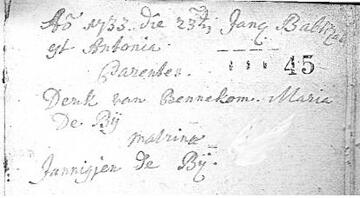 Aō 1733. die 23tj Janq Baltzal
est Antonia
Parentes 45
Denk van Bennekom. Maria
De Bij
matrina
Jannigjen de Bij.